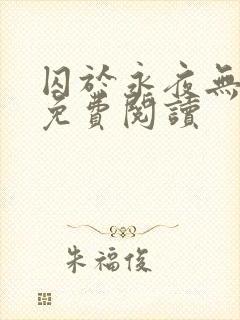 囚於永夜無
免費閱讀
朱福俊